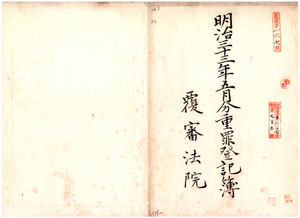 明治三十三年五月分重罪登記簿
覆審法院